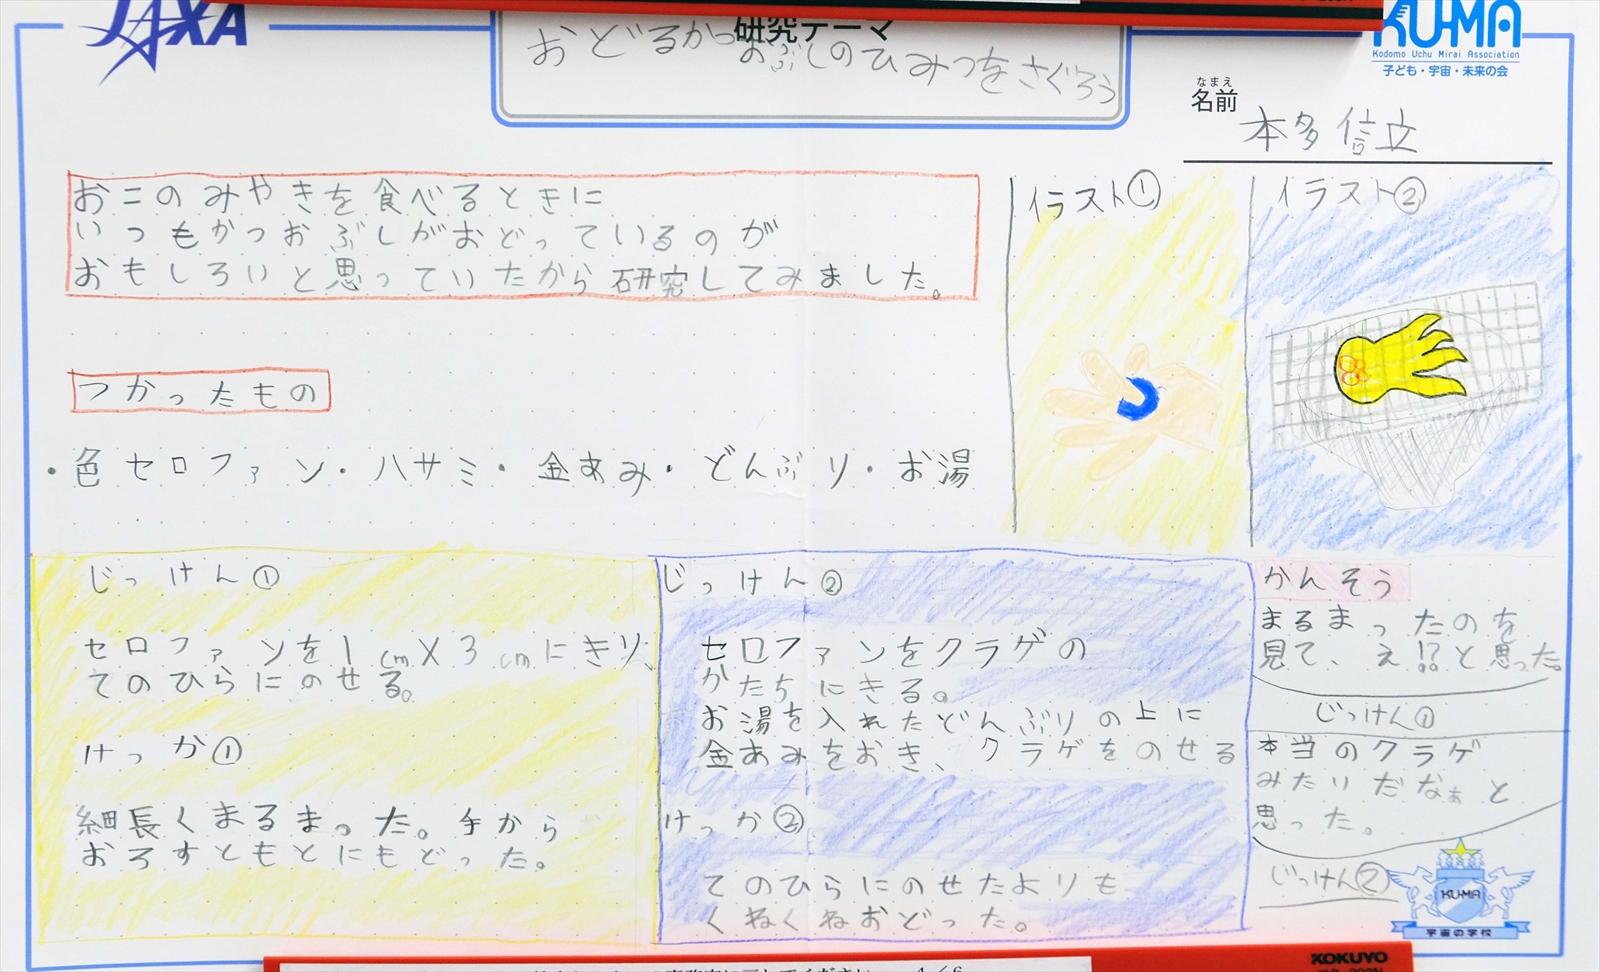 JAXA
研究テーマ
おどるかつおぶしのひみつをさぐろう
KUMA
Kodomo Uchu Mirai Association
子ども・宇宙・未来の会
なまえ
名前
本多信立
おこのみやきを食べるときに
いつもかつおぶしがおどっているのが
おもしろいと思っていたから研究してみました。
つかったもの
・色セロファン・ハサミ・金あみ・どんぶり・お湯
イラスト①
イラスト②
じっけん①
セロファンを1cm×3cmにきり、
てのひらにのせる。
けっか①
細長くまるまった。手から
おろすともとにもどった。
じっけん②
セロファンをクラゲの
かたちにきる。
お湯を入れたどんぶりの上に
金あみをおき、クラゲをのせる
けっか②
てのひらにのせたよりも
くねくねおどった。
かんそう
まるまったのを
見て、え!?と思った。
じっけん①
本当のクラゲ
みたいだなぁと
思った。
じっけん②
KUMA
宇宙の学校
KOKUYO